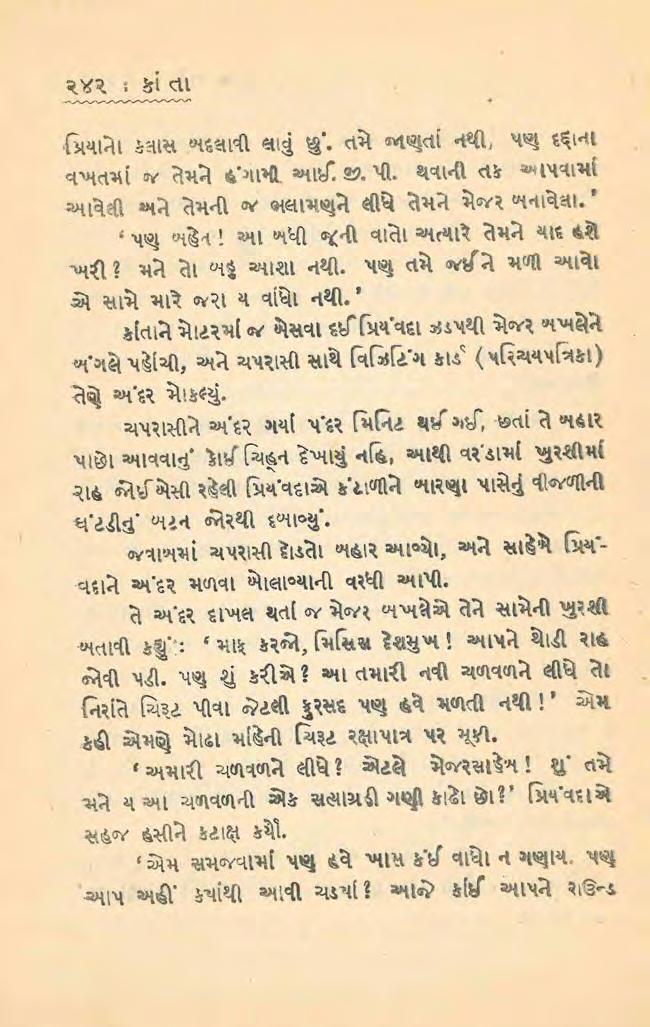 ૨૪૨ : કાંતા
પ્રિયાનો ક્લાસ બદલાવી લાવું છું. તમે જાણતાં નથી, પણ દદ્દાના
વખતમાં જ તેમને હંગામી આઈ. જી. પી. થવાની તક આપવામાં
આવેલી અને તેમની જ ભલામણને લીધે તેમને મેજર બનાવેલા.’
‘પણ બહેન! આ બધી જૂની વાતો અત્યારે તેમને યાદ હશે
ખરી? મને તો બહુ આશા નથી. પણ તમે જઈને મળી આવો
એ સામે મારે જરા ય વાંધો નથી.’
કાંતાને મોટરમાં જ બેસવા દઈ પ્રિયંવદા ઝડપથી મેજર બખલેને
બંગલે પહોંચી, અને ચપરાસી સાથે વિઝિટિંગ કાર્ડ (પરિચયપત્રિકા)
તેણે અંદર મોકલ્યું.
ચપરાસીને અંદર ગયાં પંદર મિનિટ થઈ ગઈ, છતાં તે બહાર
પાછો આવવાનું કોઈ ચિહ્ન દેખાયું નહિ, આથી વરંડામાં ખુરશીમાં
રાહ જોઈ બેસી રહેલી પ્રિયંવદાએ કંટાળીને બારણા પાસેનું વીજળીની
ઘંટડીનું બટન જોરથી દબાવ્યું.
જવાબમાં ચપરાસી દોડતો બહાર આવ્યો, અને સાહેબે પ્રિયં-
વદાને અંદર મળવા બોલાવ્યાની વરધી આપી.
તે અંદર દાખલ થતાં જ મેજર બખલેએ તેને સામેની ખુરશી
બતાવી કહ્યું: ‘માફ કરજો, મિસિસ દેશમુખ! આપને થોડી રાહ
જોવી પડી. પણ શું કરીએ? આ તમારી નવી ચળવળને લીધે તો
નિરાંતે ચિરૂટ પીવા જેટલી ફુરસદ પણ હવે મળતી નથી!’ એમ
કહી એમણે મોઢા માંહેની ચિરૂટ રક્ષાપાત્ર પર મૂકી.
‘અમારી ચળવળને લીધે? એટલે મેજરસાહેબ! શું તમે
મને ય આ ચળવળની એક સત્યાગ્રહી ગણી કાઢો છો?’ પ્રિયંવદાએ
સહજ હસીને કટાક્ષ કર્યો.
‘એમ સમજવામાં પણ હવે ખાસ કંઈ વાંધો ન ગણાય. પણ
આપ અહીં ક્યાંથી આવી ચડ્યાં? આજે કાંઈ આપને રાઉન્ડ